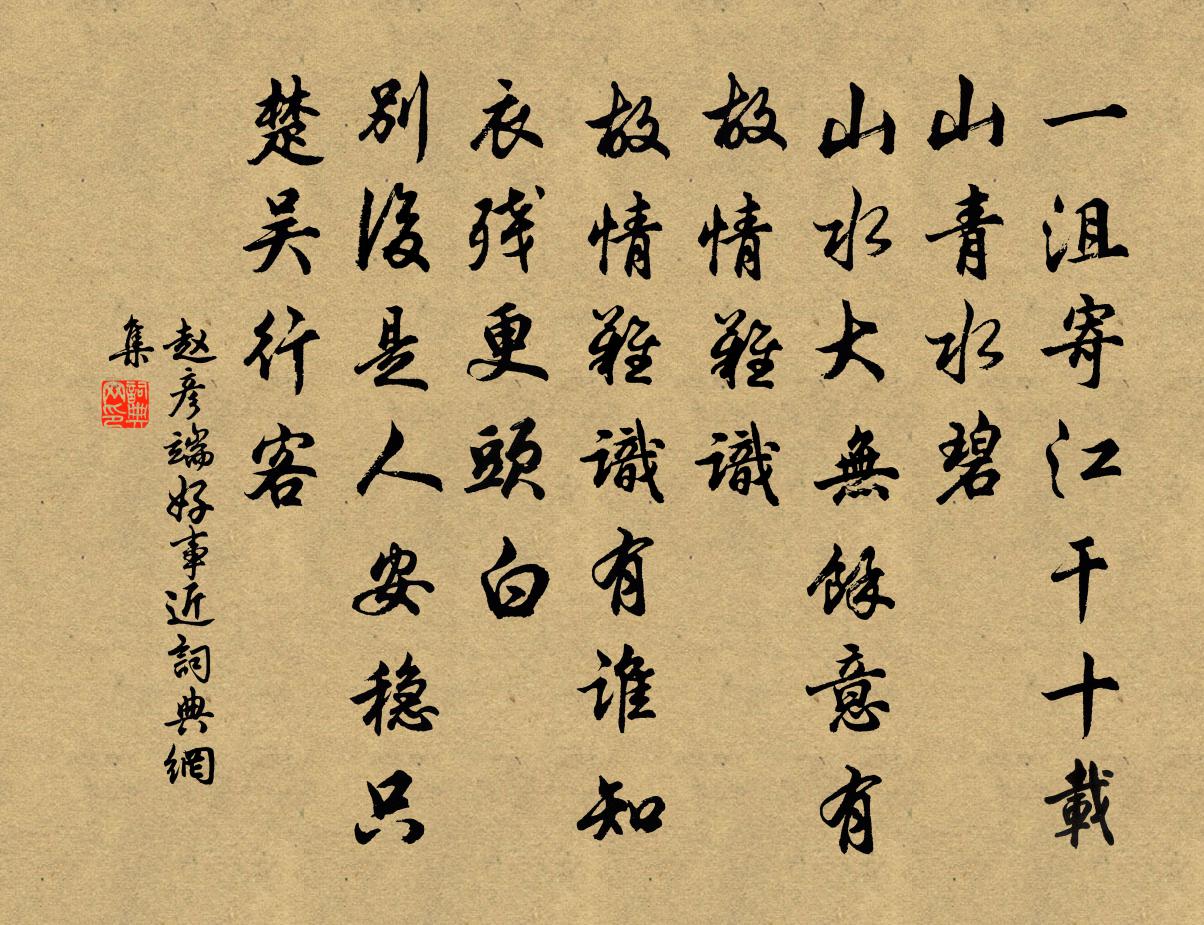 一沮寄江干十載
山青水碧
山水大無餘意有
故情難識
故情難識有谁知
衣残更頭白
别後是人安穏只
楚吴行客
赵彦端好事近詞典網
集
詞典
网印